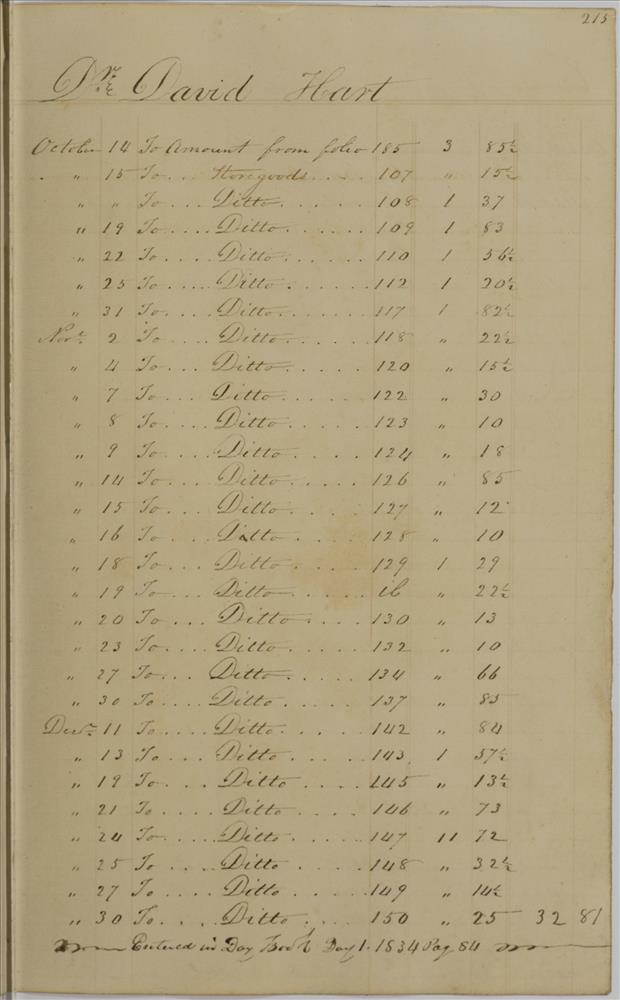 215
Dr. David Hart
October 14 To Amount from folio 185 3 85½
" 15 To .... Storegoods .... 107 " 15½
" " To .... Ditto ...... 108 1 37
" 19 To .... Ditto ...... 109 1 83
" 22 To .... Ditto ...... 110 1 56½
" 25 To .... Ditto ...... 112 1 20½
" 31 To .... Ditto ...... 117 1 82½
Novr. 2 To .... Ditto ..... 118 " 22½
" 4 To .... Ditto ..... 120 " 15½
" 7 To .... Ditto ..... 122 " 30
" 8 To .... Ditto ..... 123 " 10
" 9 To .... Ditto ..... 124 " 18
" 14 To .... Ditto ..... 126 " 85
" 15 To .... Ditto ..... 127 " 12
" 16 To .... Ditto ..... 128 " 10
" 18 To ... Ditto ..... 129 1 29
" 19 To ... Ditto ...... ib " 22½
" 20 To ... Ditto ..... 130 " 13
" 23 To ... Ditto ..... 132 " 10
" 27 To ... Ditto ..... 134 " 66
" 30 To .... Ditto ..... 137 " 85
Decr. 11 To .... Ditto ..... 142 " 84
" 13 To .... Ditto ..... 143 1 37½
" 19 To .... Ditto ..... 145 " 13½
" 21 To .... Ditto ..... 146 " 73
" 24 To .... Ditto ..... 147 11 72
" 25 To .... Ditto ..... 148 " 32½
" 27 To .... Ditto ..... 149 " 14½
" 30 To .... Ditto ..... 150 " 25 32 81
Entered in Day Book Day 1. 1834 Pag 84